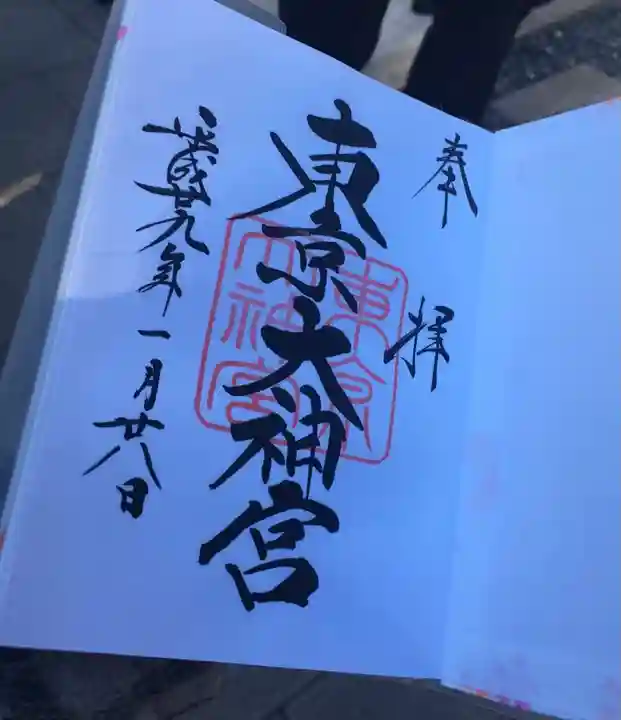 奉拝
東京大神宮
平成廿九年一月廿八日
東京大神宮